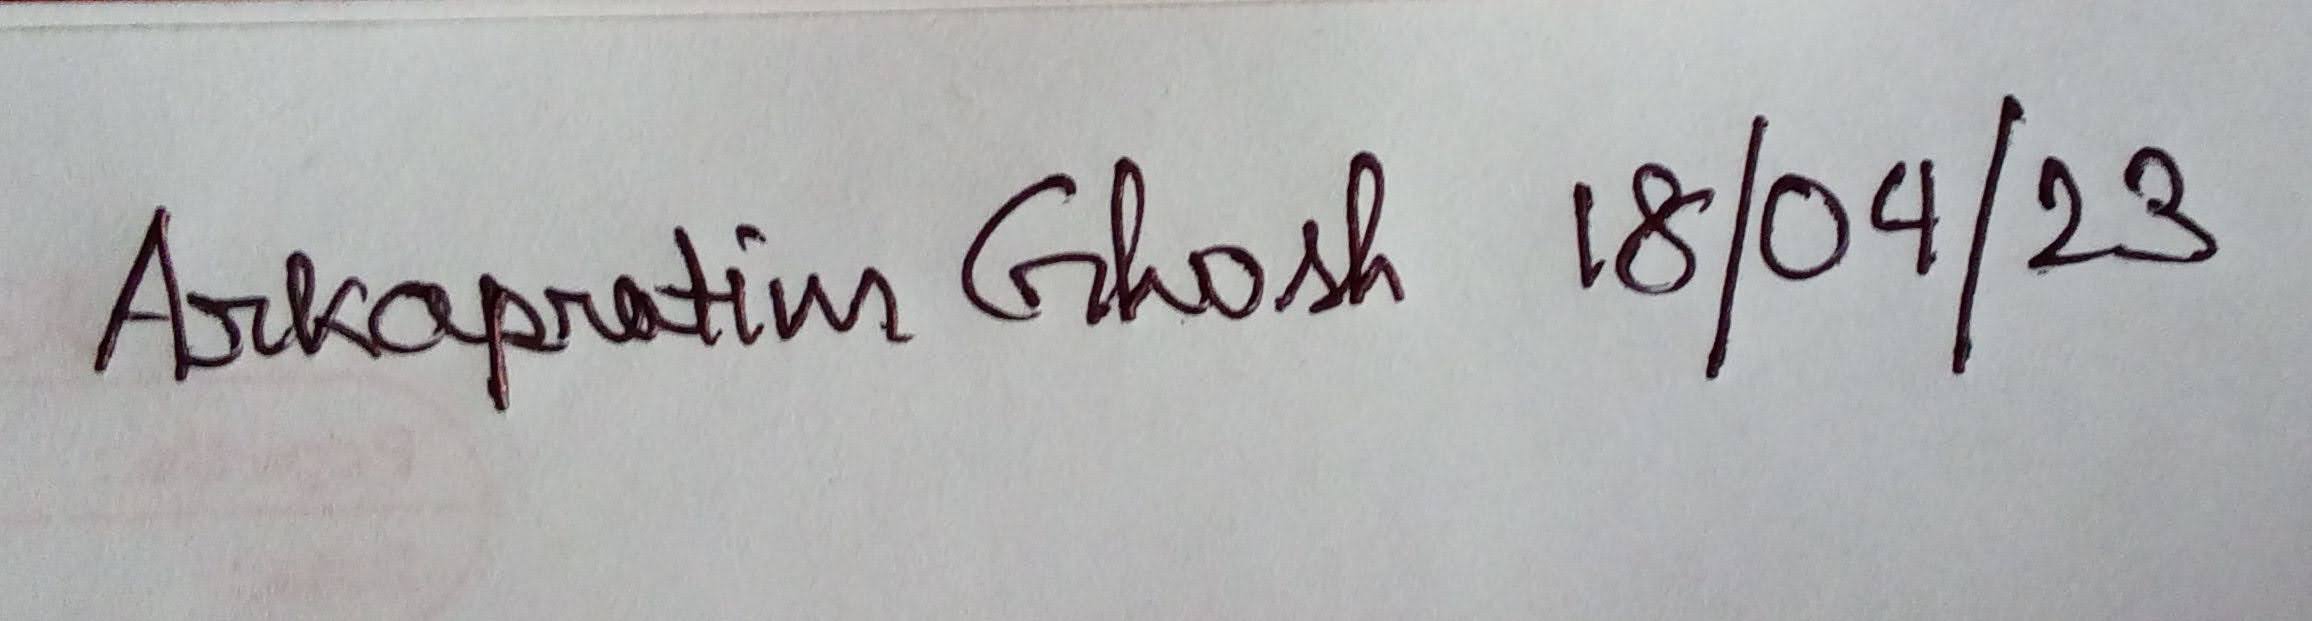 Arkapratim Ghosh 18/04/23